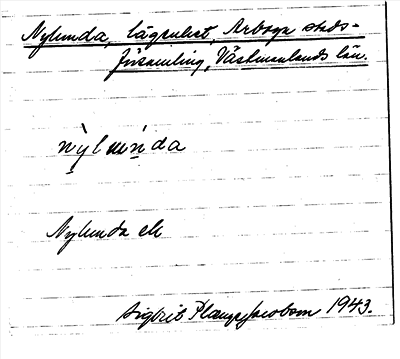 Nylunda, lägenhet, Arboga stads-
församling, Västmanlands län.
nỳluńda
Nylunda ek
Sigbrit Plænge Jacobson 1943.